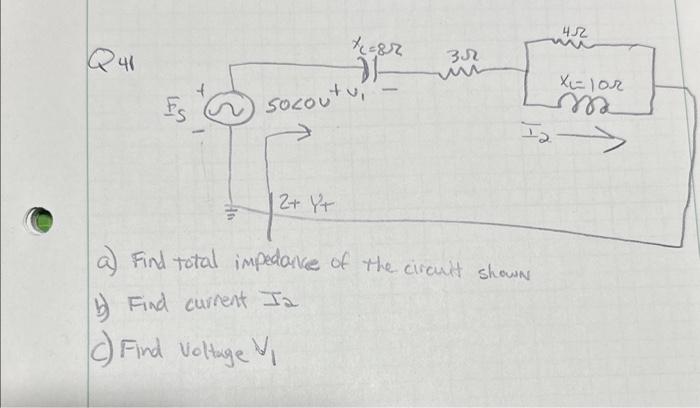 Q41
Xc=8Ω
3Ω
4Ω
XL=10Ω
Es
+
-
50<0V
+ V1 -
I2
Z+ Y+
a) Find total impedance of the circuit shown
b) Find current I2
c) Find Voltage V1